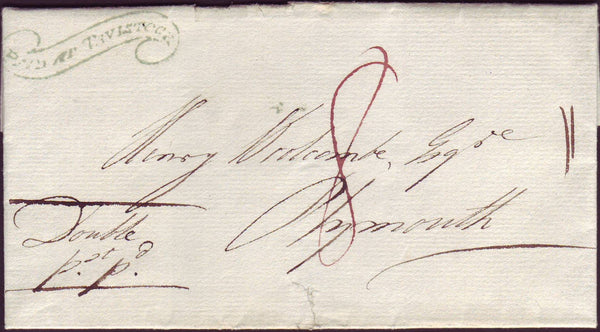 PAID AT TAVISTOCK
8
Henry Woolcombe, Esqre
Plymouth
Double
pst pd